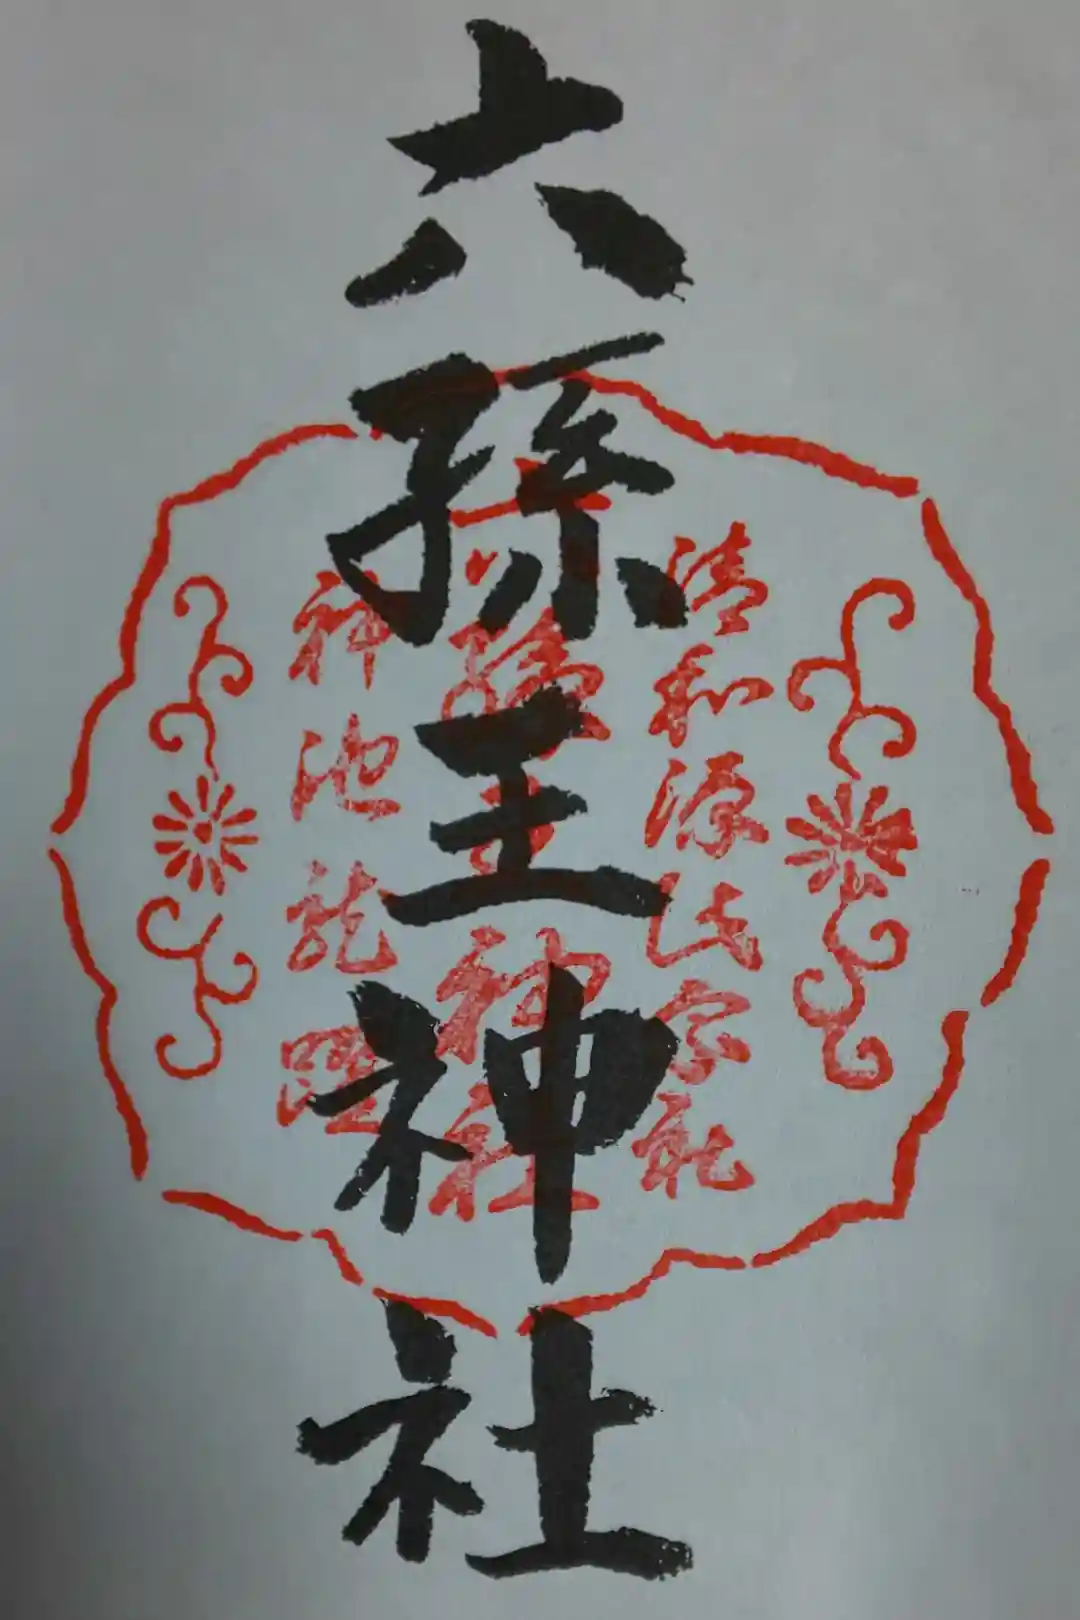 六孫王神社
清和源氏宗社
六孫王神社
神池龍